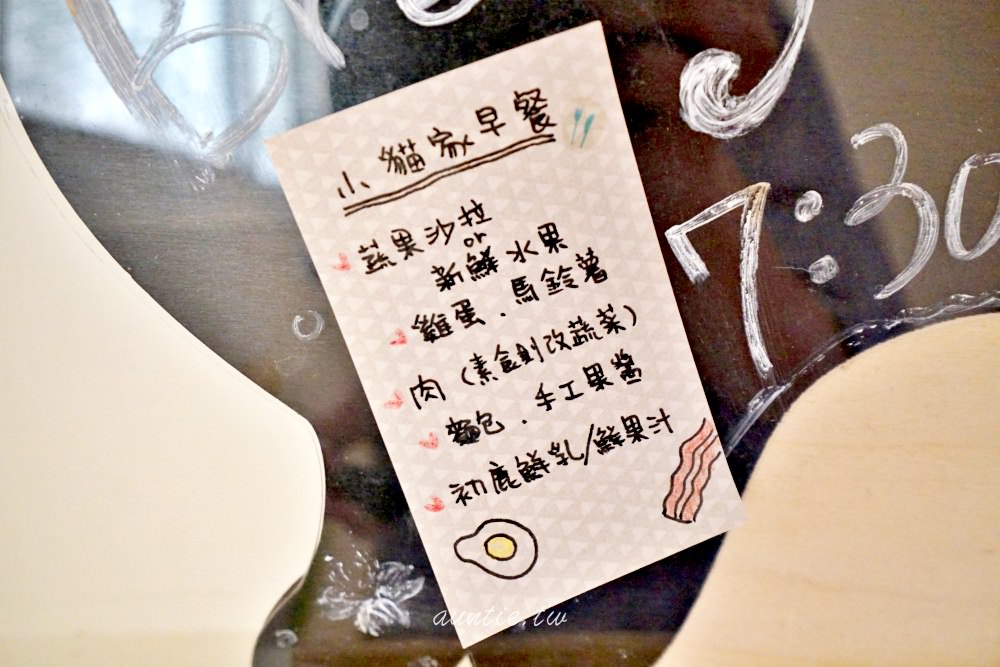 7:30
小貓家早餐
蔬果沙拉
or
新鮮水果
雞蛋．馬鈴薯
肉（素食則改蔬菜）
麵包．手工果醬
初鹿鮮乳/鮮果汁
auntie.tw